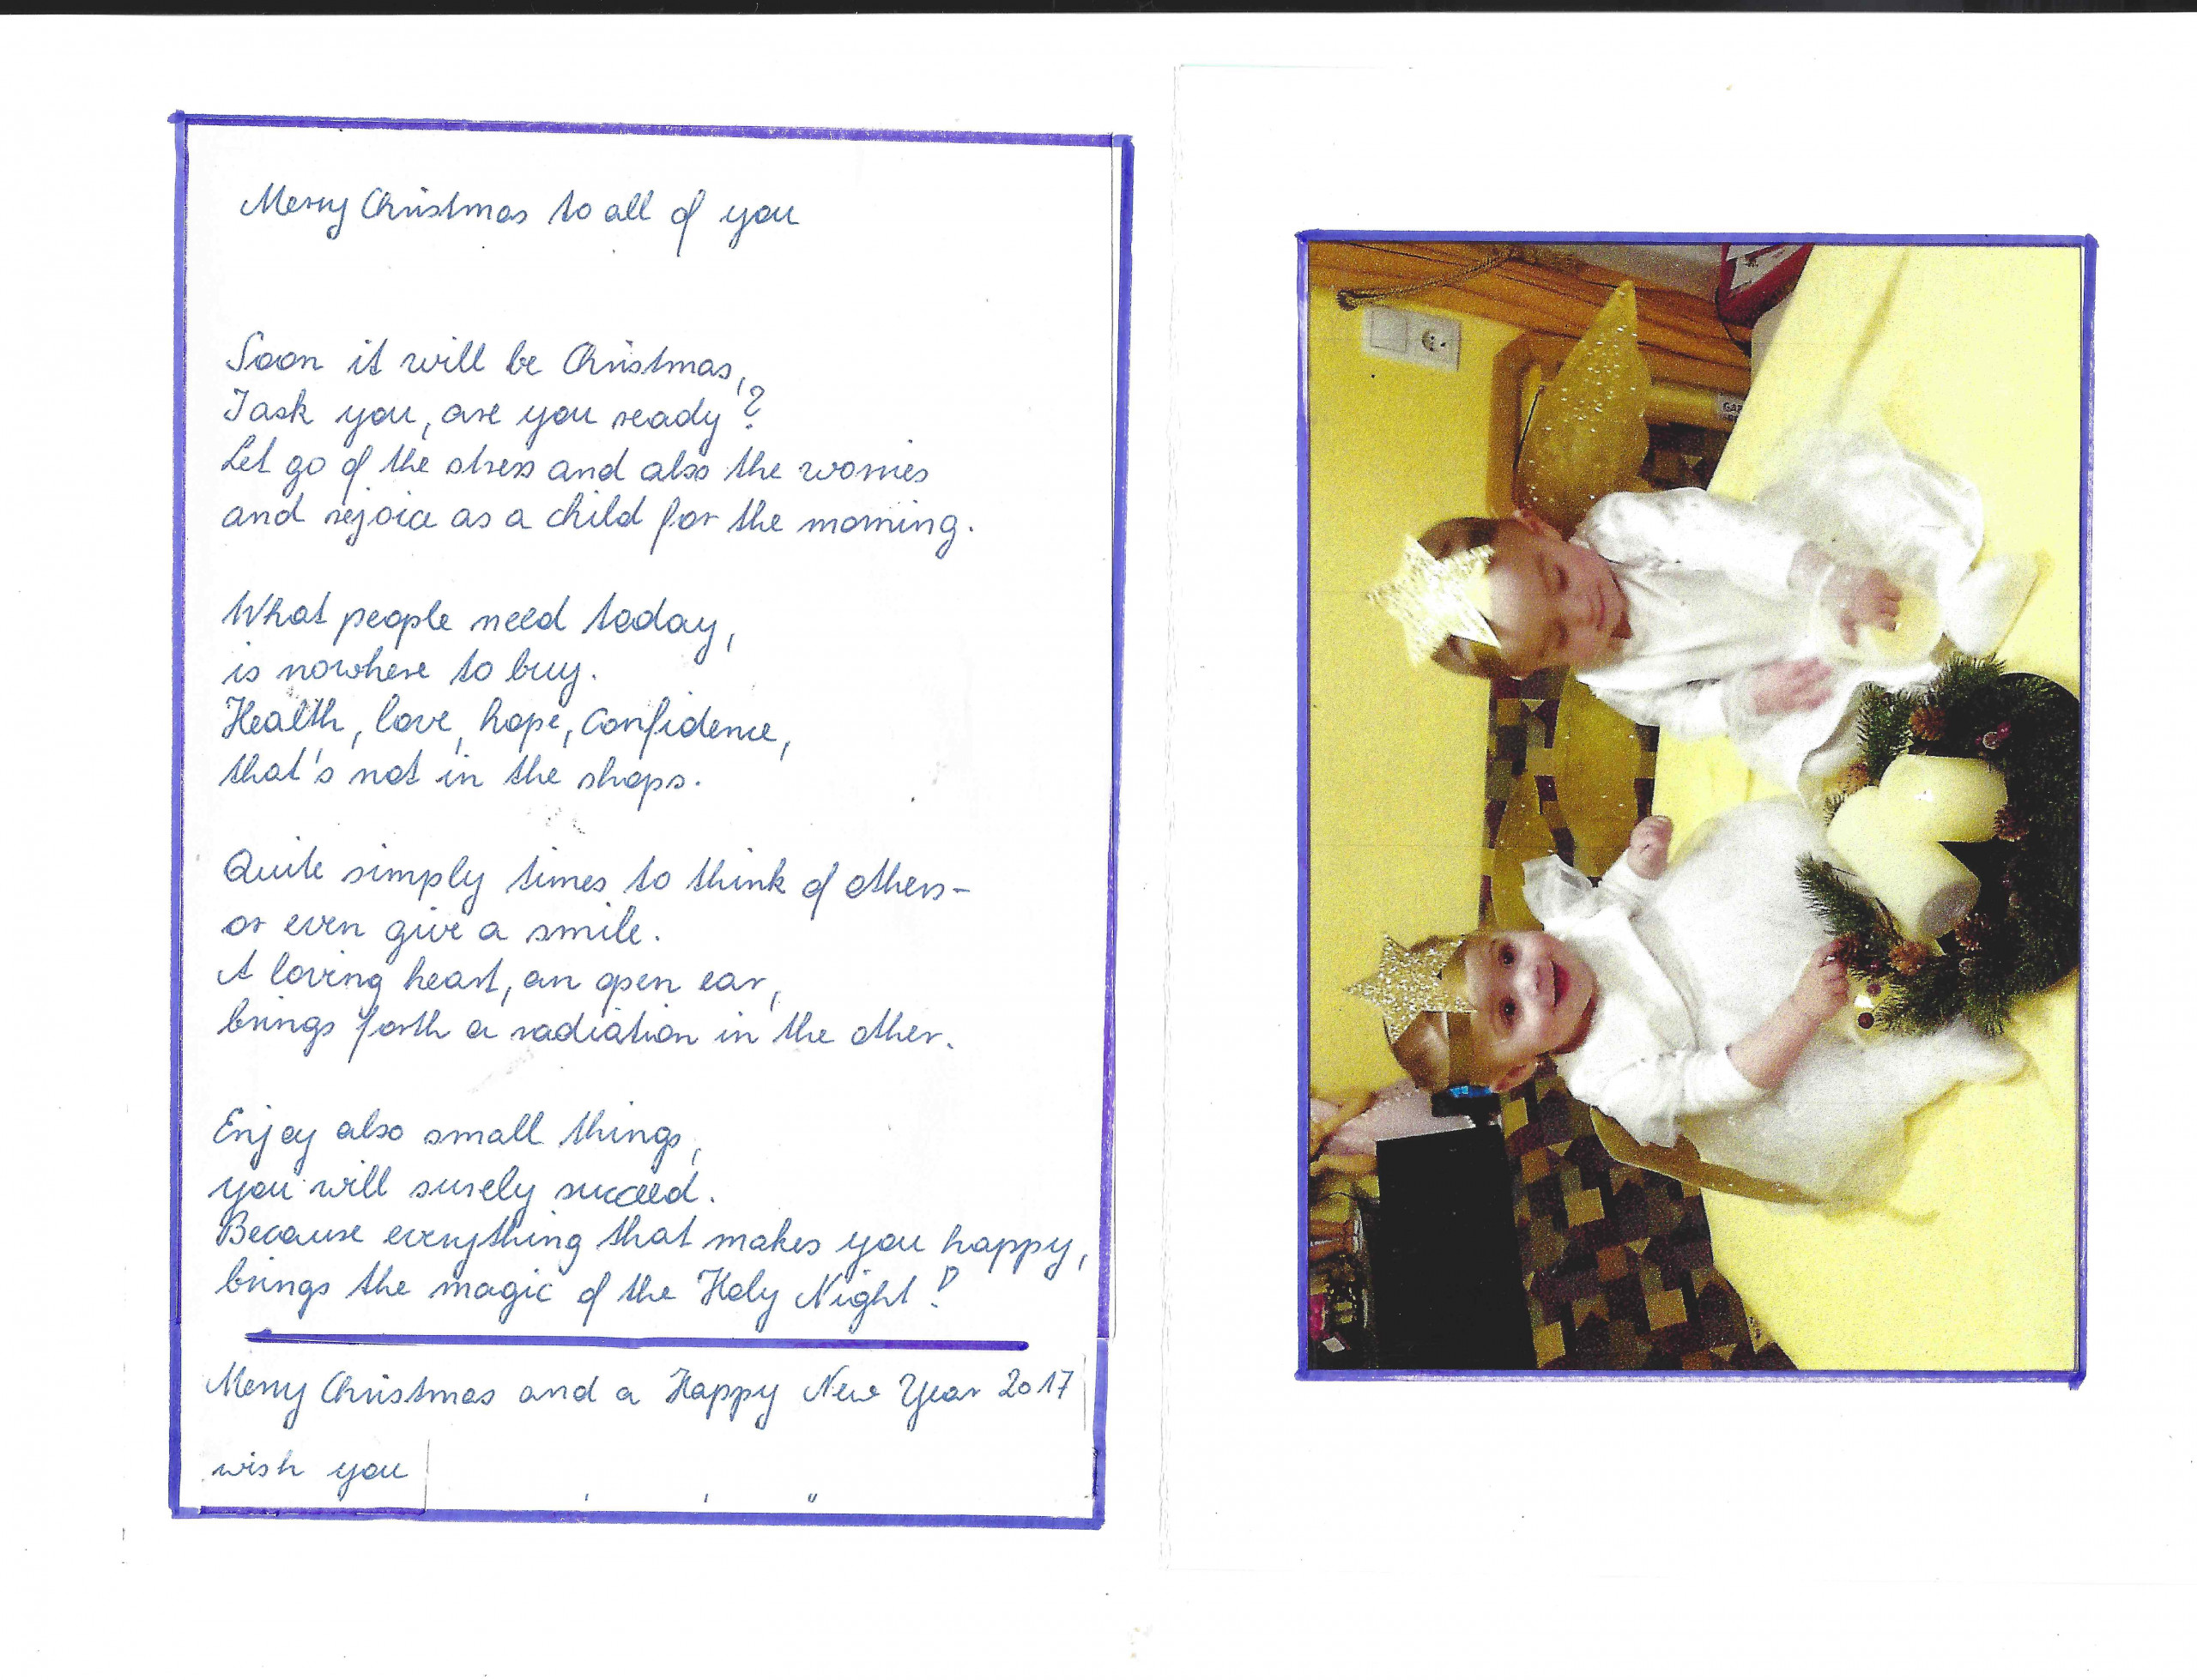 Merry Christmas to all of you
Soon it will be Christmas,
I ask you, are you ready?
Let go of the stress and also the worries
and rejoice as a child for the morning.
What people need today,
is nowhere to buy.
Health, love, hope, confidence,
that's not in the shops.
Quite simply times to think of others-
or even give a smile.
A loving heart, an open ear,
brings forth a radiation in the other.
Enjoy also small things,
you will surely succeed.
Because everything that makes you happy,
brings the magic of the Holy Night!
Merry Christmas and a Happy New Year 2017
wish you